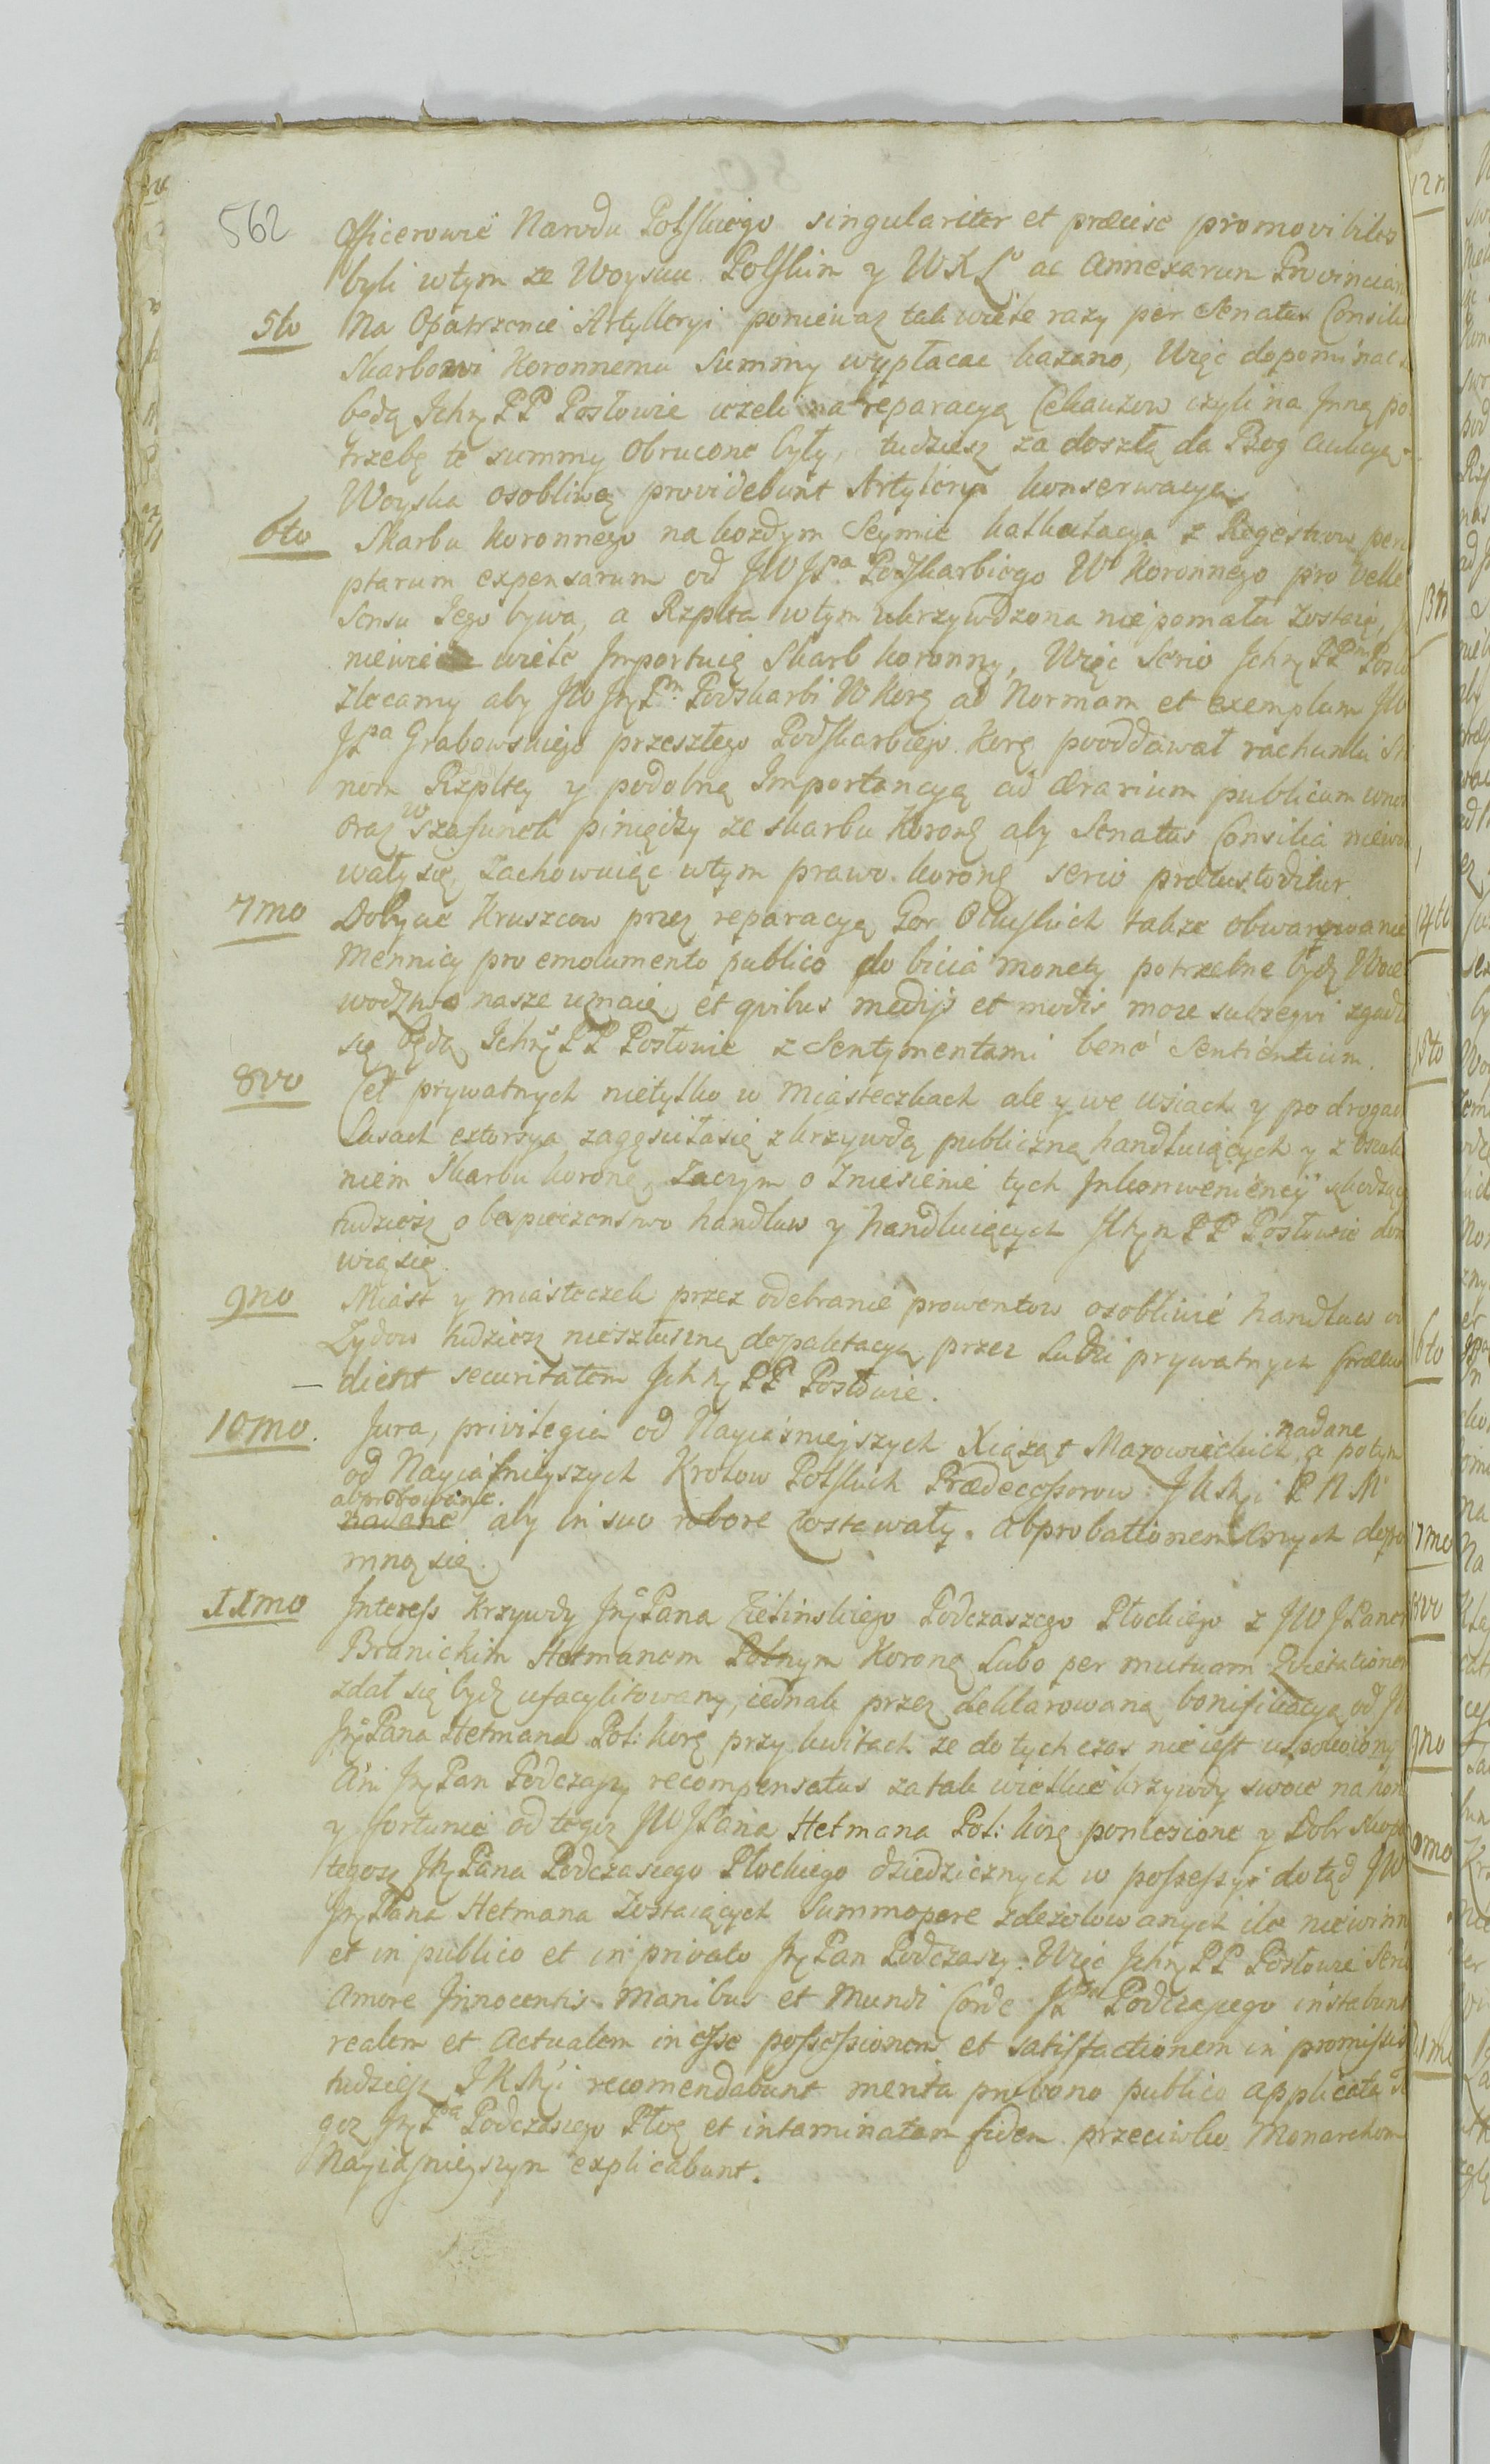 562
Officerowie Narodu Polskiego singulariter et præcise promovibiles
byli wtym ze Woysku Polskim y WXL° ac Annexarum Provinciar
5to Na Opatrzenie Artylleryi poniewaz tak wiele razy per Senatus Consilia
Skarbowi Koronnemu Summy wypłacac kazano, Więc dopominac
będą Ichm PP Posłowie iezeli na reparacyą Cekauzow czyli na Inną po
trzebę te summy obrucone były, tudziesz za doszłą da Bog Aukcyą
Woyska osobliwą providebunt Artyleryi konserwacyą
6to Skarbu Koronnego nakozdym Seymie kalkulacya z Regestrow
ptarum expensarum od JW JPa Podskarbiego Wo Koronnego pro velle
Sensu Jego bywa, a Rzplta wtym ukrzywdzona niepomału zostaie,
niewie wiele Importuie Skarb koronny, Więc Serio Ichm PPm Posło
zlecamy aby JW Jm Pn Podskarbi W Korg ad Normam et exemplum JW
JPa Grabowskiego przeszłego Podskarbiego Korg pooddawał rachunki
nom Rzpltey y podobną Importancyą ad ærarium publicum wno
oraz w Szafunek piniędzy ze skarbu Korong aby Senatus Consilia niewd
wały się, Zachowuiąc wtym prawo korong serio præcustoditur
7mo Dobycie Kruszcow przez reparacyą Gor Olkuskich takze obwarowanie
Mennicy pro emolumento publico do bicia monety potrzebne bydz Woie
wodztwo nasze uznaie, et quibus medijs et modis more subsequi zgodz
się będą Ichm PP Posłowie z Sentymentami bene Sentientium.
8vo Ceł prywatnych nietylko w Miasteczkach ale y we wsiach y po drogach
Lasach extorsya zagęsciłasię zkrzywdą publiczną handluiących y z
niem Skarbu korong, Zaczym o Zniesienie tych Inkonweniencyi
tudziesz obespieczenstwo handlow y handluiących Ichm PP Posłowie dom
wią się.
9no Miast y miasteczek przez odebranie prowentow osobliwie handlow
Zydow tudziesz niesłuszną depaktacyą przez Ludzi prywatnych præcu
dient securitatem Ichm PP Posłowie.
10mo. Jura, privilegia od Nayiasnieyszych Xiąząt Mazowieckich nadane a potym
od Nayiasnieyszych Krolow Polskich Prædecessorow JKMci P N M
abprobowane. nadane aby in suo robore zostawały. Abprobationem onych
mną się.
11mo Interess Krzywdy Jm Pana Zielinskiego Podczaszego Płockiego z JW JPanem
Branickim Hetmanem Polnym Korong Lubo per mutuam Quietationem
zdał się bydz ufacylitowany, iednak przez deklarowaną bonifikacyą od
Jm Pana Hetmana Pol: korg przy kwitach ze do tych czas nie iest uspokoiony
Ani Jm Pan Podczaszy recompensatus za tak wielkie krzywdy swoie na hon
y fortunie od tegoz JW JPana Hetmana Pol: korg poniesione y Dobr
tegosz Jm Pana Podczaszego Płockiego dziedzicznych w possessyi dotąd JW
Jm Pana Hetmana Zostaiących Summopere zdezolowanych ile niewinn
et in publico et in privato Jm Pan Podczaszy. Więc Ichm PP Posłowie Serio
Amore Innocentis Manibus et Mundi Corde JPa Podczaszego instabunt
realem et Actualem in esse possessionem et satisfactionem in promissis
tudziesz JKMci recomendabunt merita pro bono publico applicata
goz Jm Pa Podczaszego Płog et intaminatam fidem przeciwko Monarchom
Nayiasnieyszym explicabunt.